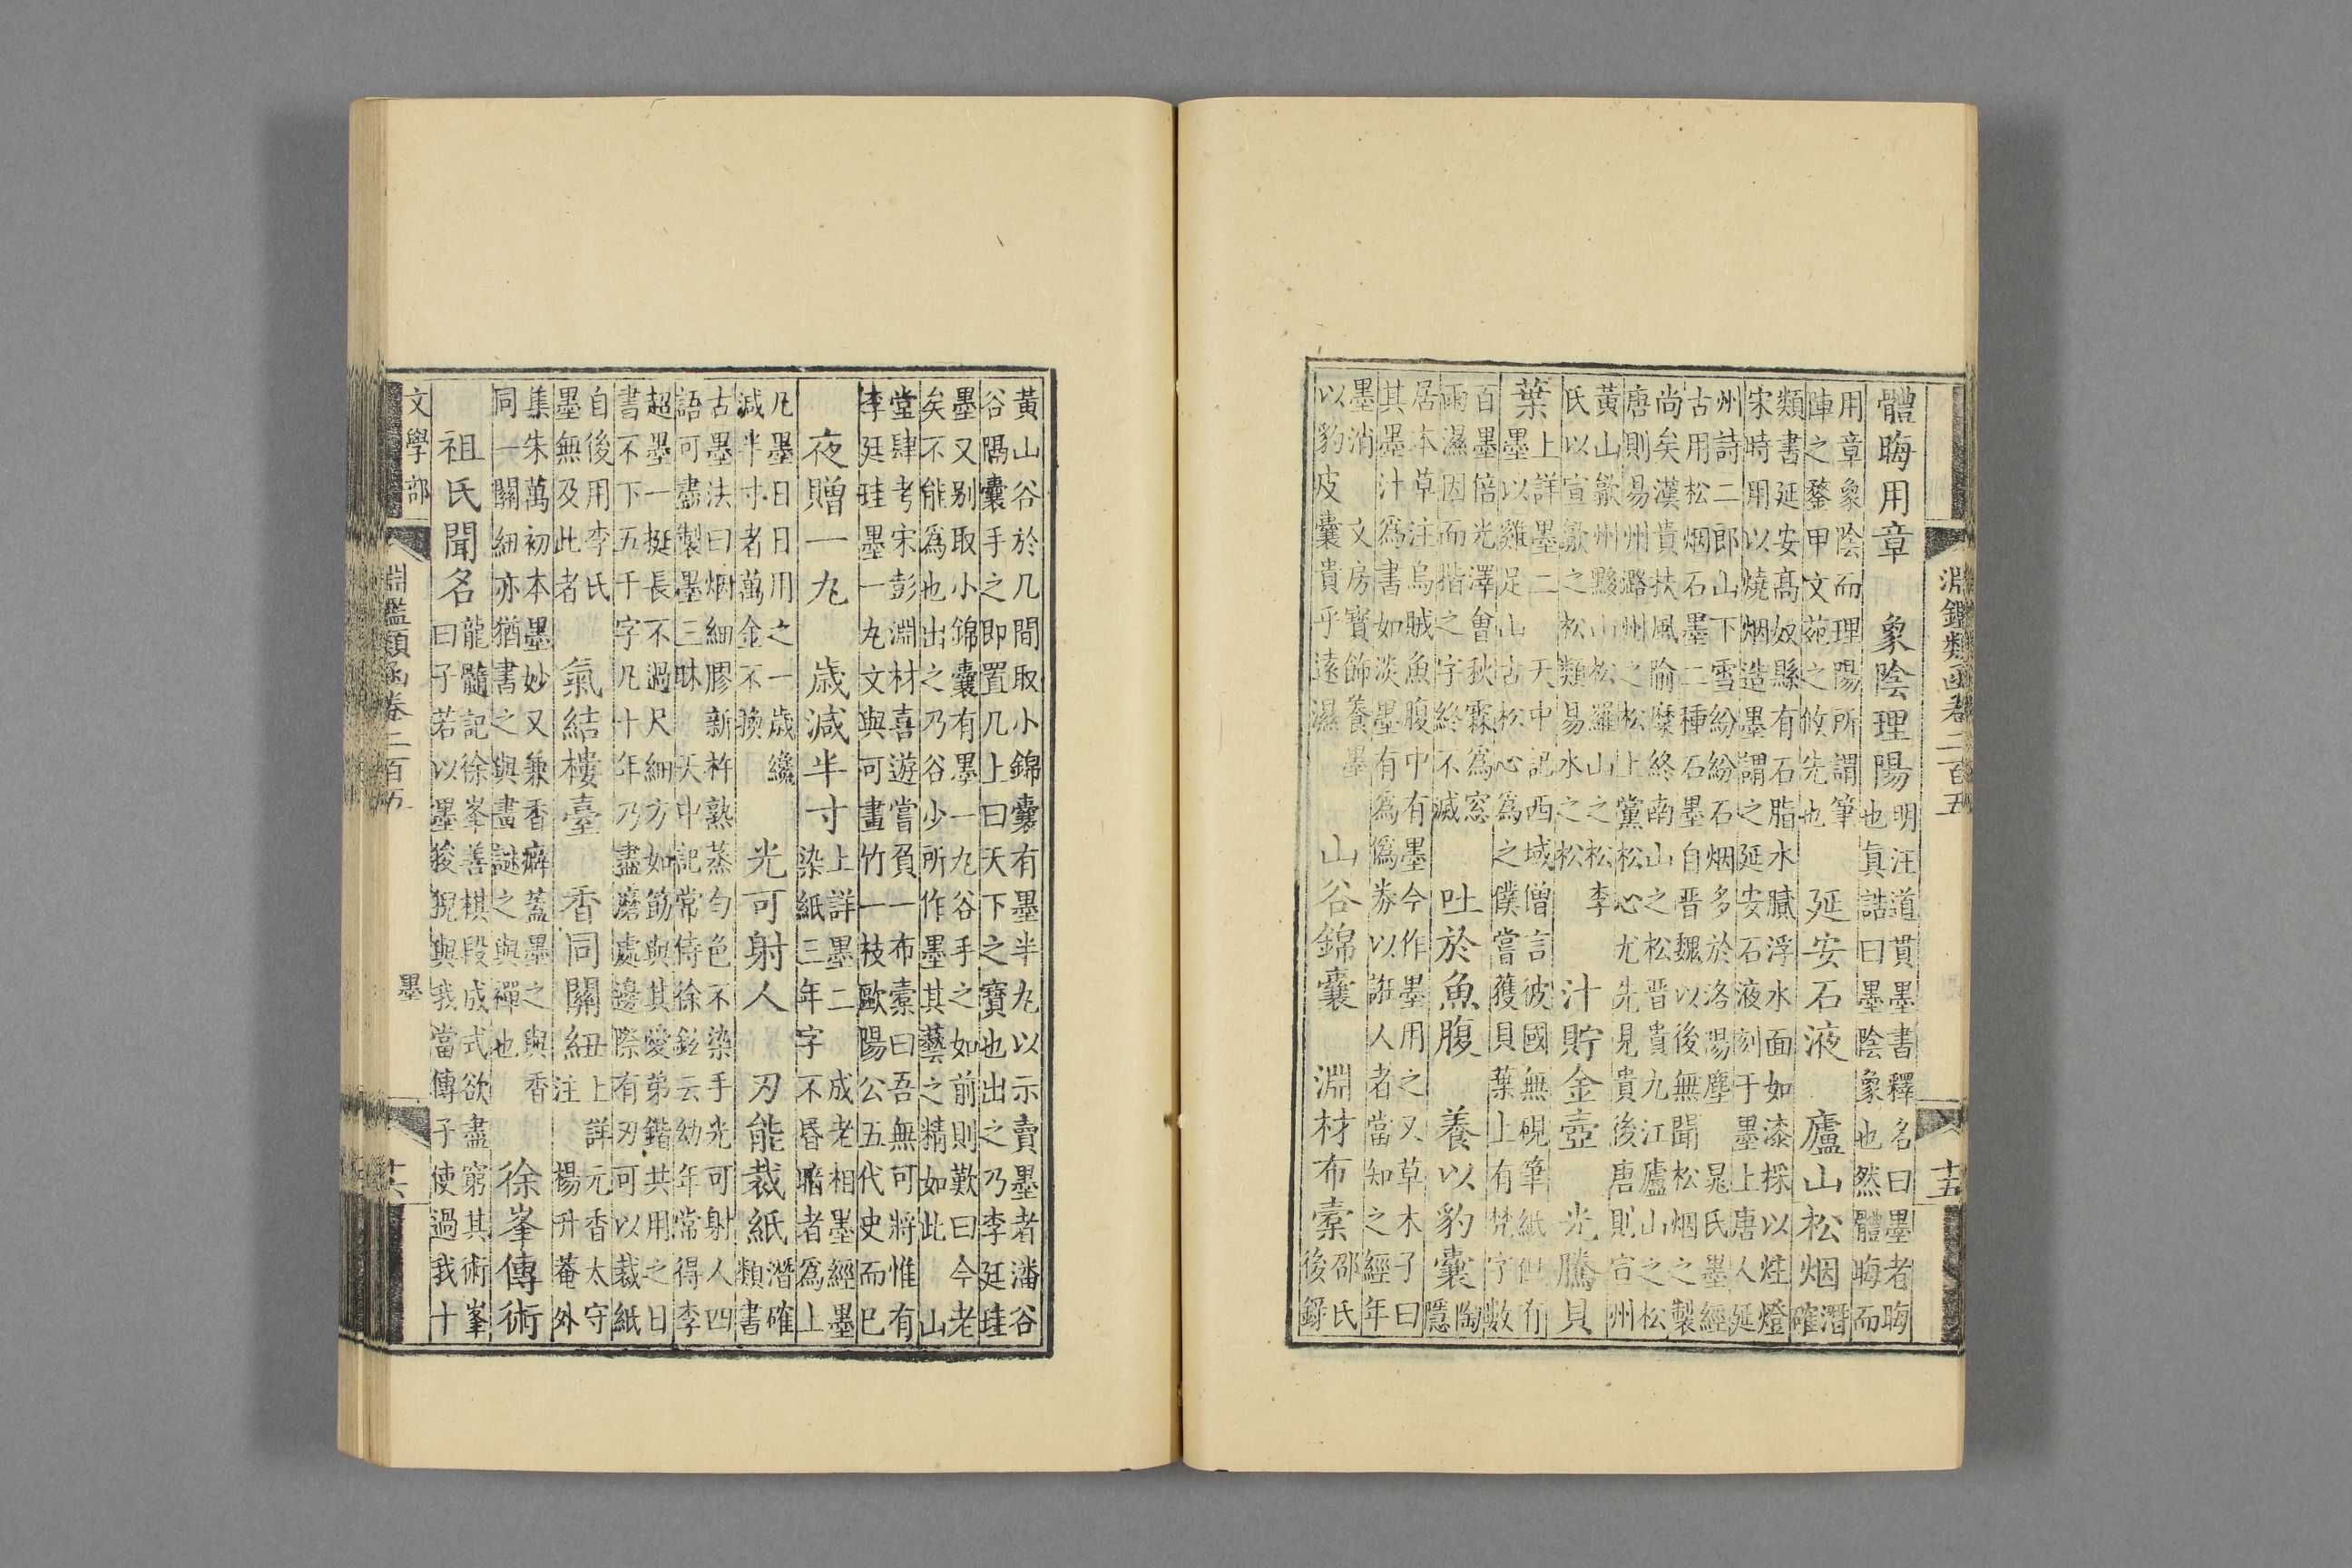 淵鑑類函卷二百五
十五
體晦用章 象陰理陽
明汪道貫墨書釋名曰墨者晦
也真誥曰墨陰象也然體晦而
用章象陰而理陽所謂筆
陣之鍪甲文苑之攸先也
延安石液 廬山松烟
潛
確
類書延安高奴縣有石脂水膩浮水面如漆採以烓燈
宋時用以燒烟造墨謂之延安石液刻于墨上唐人延
州詩二郎山下雪紛紛石烟多於洛陽塵 晁氏墨經
古用松烟石墨二種石墨自晉魏以後無聞松烟之製
尚矣漢貴扶風隃糜終南山之松晉貴九江廬山之松
唐則易州潞州之松上黨松心尤先見貴後唐則宣州
黃山歙州黟山松羅山之松李
氏以宣歙之松類易水之松
汁貯金壺 光騰貝
葉
上詳墨二 天中記西域僧言彼國無硯筆紙但有
墨以雞足山古松心為之僕嘗獲貝葉上有梵字數
百墨倍光澤會秋霖為窓
雨濕因而揩之字終不滅
吐於魚腹 養以豹囊
陶
隱
居本草注烏賊魚腹中有墨今作墨用之又草木子曰
其墨汁為書如淡墨有為偽券以誑人者當知之經年
墨消 文房寶飾養墨
以豹皮囊貴乎遠濕
山谷錦囊 淵材布橐
邵氏
後錄
黃山谷於几間取小錦囊有墨半丸以示賣墨者潘谷
谷隔囊手之即置几上曰天下之寶也出之乃李廷珪
墨又别取小錦囊有墨一丸谷手之如前則歎曰今老
矣不能為也出之乃谷少所作墨其藝之精如此 山
堂肆考宋彭淵材喜遊嘗負一布橐曰吾無可將惟有
李廷珪墨一丸文與可畫竹一枝歐陽公五代史而已
夜贈一丸 歲減半寸
上詳墨二 成老相墨經墨
染紙三年字不昏暗者為上
凡墨日日用之一歲纔
減半寸者萬金不換
光可射人 刃能裁紙
潛確
類書
古墨法曰烟細膠新杵熟蒸勻色不染手光可射人四
語可盡製墨三昧 天中記常侍徐鉉云幼年常得李
超墨一挺長不過尺細方如筯與其愛弟鍇共用之日
書不下五千字凡十年乃盡磨處邊際有刃可以裁紙
自後用李氏
墨無及此者
氣結樓臺 香同關紐
上詳元香太守
注 楊升菴外
集朱萬初本墨妙又兼香癖蓋墨之與香
同一關紐亦猶書之與畫謎之與禪也
徐峯傳術
祖氏聞名
龍髓記徐峯善棋段成式欲盡窮其術峯
曰子若以墨狻猊與我當傳子使過我十
文學部
淵鑑類函卷二百五
墨